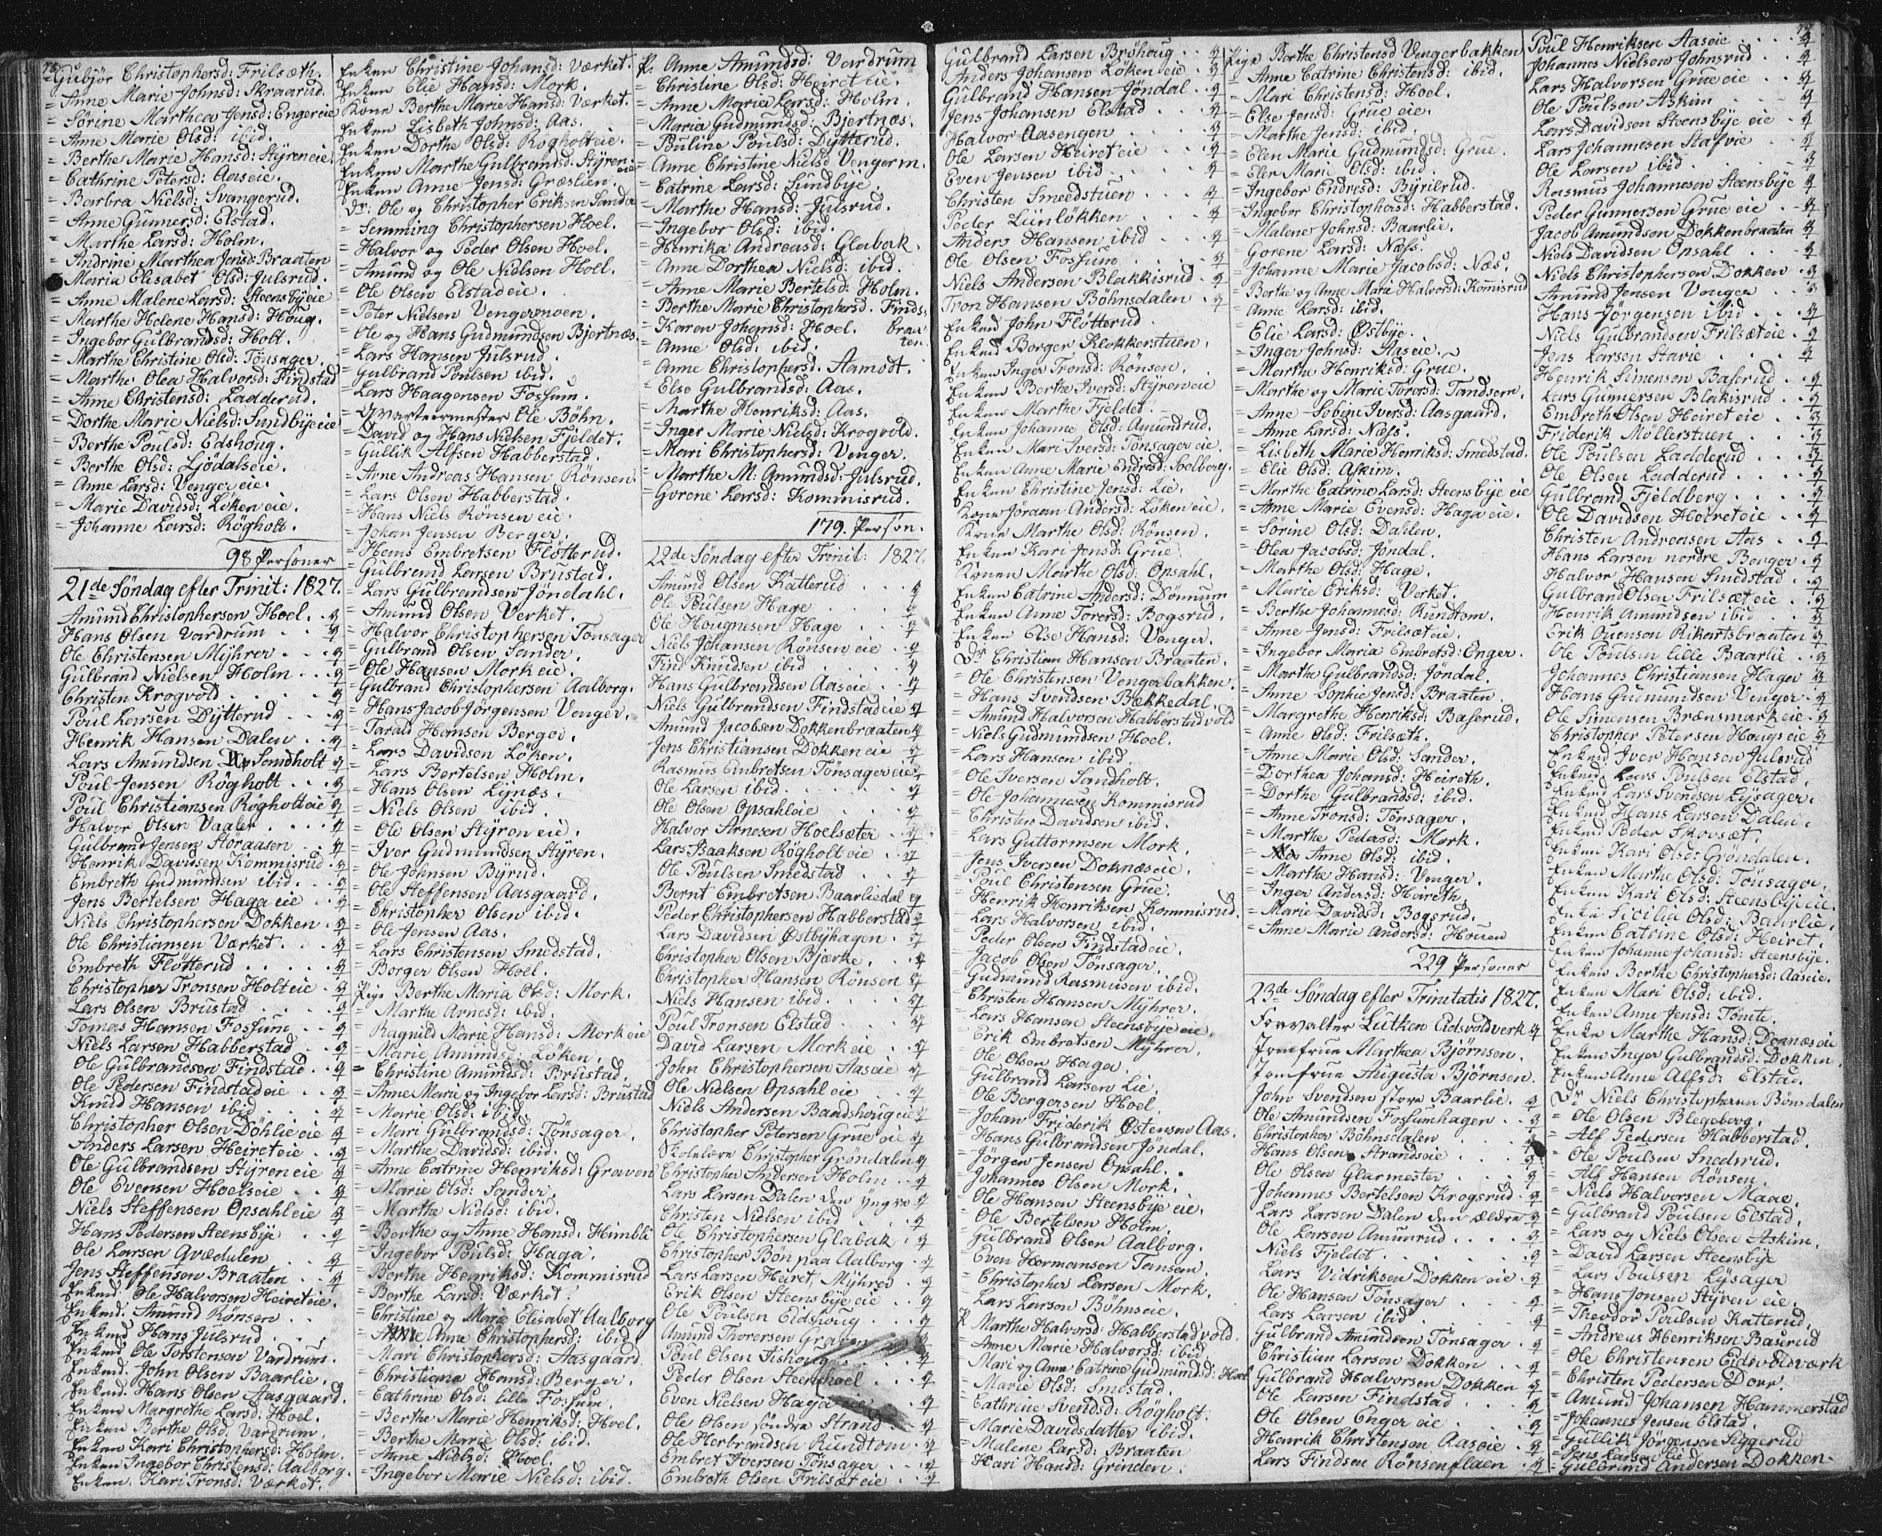 75.
Gubjør Christophersd: Frilsæth.
= Anne Marie Johnsd: Skraarud.
= Sørine Marthea Jensd: Enger eie
= Anne Marie Olsd: ibid.
= Berthe Marie Hansd: Styren eie.
= Cathrine Petersd: Aaseie.
= Barbra Nielsd: Svangerud.
= Anne Gunnersd: Elstad.
= Marthe Larsd: Holm.
= Andrine Marthea Jensd: Braaten
= Maria Elisabet Olsd: Julsrud.
= Anne Malene Larsd: Steensbye eie
= Marthe Helene Hansd: Houg.
= Ingebor Gulbrandsd: Holt.
= Marthe Christine Olsd: Tönsager.
= Marthe Olea Halvorsd: Findstad
= Anne Christensd: Ladderud.
= Dorthe Marie Nielsd: Sundbye eie
= Berthe Poulsd: Edshoug.
= Berthe Olsd: Ljödalseie.
= Anne Larsd: Venger eie.
= Marie Davidsd: Löken eie.
= Johanne Larsd: Rögholt.
98 Personer
21de Söndag efter Trinit: 1827.
Amund Christophersen Hoel . 4
Hans Olsen Vardrum . . 4
Ole Christensen Mijhrer . . 4
Gulbrand Nielsen Holm . . 4
Christen Krogvold . . . 4
Poul Larsen Dytterud . . . 4
Henrik Hansen Dalen . . 4
Lars Amundsen Sandholt 4
Poul Jensen Rögholt . . . 4
Poul Christiansen Rögholt eie 4
Halvor Olsen Vaaler . . . 4
Gulbrand Jensen Storaasen . . 4
Henrik Davidsen Kommisrud . 4
Embreth Gudmundsen ibid. . . 4
Jens Bertelsen Haga eie . . 4
Niels Christophersen Dokken . 4
Ole Christiansen Værket . . 4
Embreth Fløtterud . . . . 4
Christopher Tronsen Holt eie . 4
Lars Olsen Brustad . . . 4
Tomas Hansen Fossum . . 4
Niels Larsen Habberstad . . 4
Ole Gulbrandsen Findstad . . 4
Ole Pedersen Findstad eie . 4
Knud Hansen ibid . . . 4
Christopher Olsen Döhlie eie 4
Anders Larsen Heiret eie . . 4
Ole Gulbrandsen Styren eie 4
Ole Evensen Hoelseie . . 4
Niels Steffensen Opsahl eie 4
Hans Pedersen Steensbye . . 4
Ole Larsen Qvædulen . . 4
Jens Steffensen Braaten . . 4
Enkmd. Ole Halvorsen Heiret eie.
Enkmd. Amund Rönsen.
Enkmd. Hans Julsrud . . .
Enkmd. Ole Torstensen Vardrum.
Enkmd. John Olsen Baarlie.
Enkmd. Hans Olsen Aasgaard.
Enken Margrethe Larsd: Hoel.
Enken Berthe Olsd: Vardrum.
Enken Kari Christophersd: Holm.
Enken Ingebor Christensd: Aalborg.
Enken Kari Tronsd: Værket.
Enken Christine Johansd: Værket.
Enken Elie Hansd: Mork.
Kone Berthe Marie Hansd: Værket.
Enken Lisbeth Johnsd: Aas.
Enken Dorthe Olsd: Rögholt eie.
Enken Marthe Gulbrandsd: Styren eie
Enken Anne Jensd: Græslien.
Dr: Ole og Christopher Eriksen Sander
= Semming Christophersen Hoel.
= Halvor og Peder Olsen Hoel.
= Amund og Ole Nielsen Hoel.
= Ole Olsen Elstad eie.
= Peter Nielsen Vengermoen.
= Ole og Hans Gudmundsen Bjertnæs.
= Lars Hansen Julsrud.
= Gulbrand Poulsen ibid.
= Lars Haagensen Fossum.
= Qvarteermester Ole Böhn.
= David og Hans Nielsen Fjeldet.
= Gullik Alfsen Habberstad.
= Arne Andreas Hansen Rönsen
= Lars Olsen Habberstad.
= Hans Niels Rönsen eie.
= Johan Jensen Berger.
= Hans Embretsen Flötterud.
= Gulbrand Larsen Brustad.
= Lars Gulbrandsen Jöndahl.
= Amund Olsen Verket.
= Halvor Christophersen Tonsager
= Gulbrand Olsen Sander.
= Ole Hansen Mork eie.
= Gulbrand Christophersen Aalborg.
= Hans Jacob Jörgensen Venger.
= Tarald Hansen Berger.
= Lars Davidsen Löken.
= Lars Bertelsen Holm.
= Hans Olsen Lynæs.
= Niels Olsen ibid.
= Ole Olsen Styren eie.
= Iver Gudmundsen Styren.
= Ole Johnsen Byrud.
= Ole Steffensen Aasgaard.
= Christopher Olsen ibid.
= Ole Jensen Aas.
= Lars Christensen Smedstad.
= Borger Olsen Hoel.
Pige Berthe Maria Olsd: Mork.
= Marthe Arnesd: ibid.
= Ragnild Marie Hansd: Mork eie
= Marie Amundsd: Löken.
= Christine Amundsd: Brustad.
= Anne Marie og Ingebor Larsd: Brustad
= Marie Olsd: ibid.
= Mari Gulbrandsd: Tönsager.
= Marthe Davidsd: ibid.
= Anne Catrine Henriksd: Graven
= Marie Olsd: Sander.
= Marthe Nielsd: ibid.
= Berthe og Anne Hansd: Heimblie
= Ingebor Poulsd: Haga.
= Berthe Henriksd: Kommisrud
= Berthe Larsd: Værket.
= Christine og Marie Elisabet Aalborg
= Anne Christophersd: ibid
= Mari Christophersd: Aasgaard.
= Christiana Hansd: Berger.
= Cathrine Olsd: lille Fossum.
= Berthe Marie Henriksd: Hoel.
= Berthe Marie Olsd: ibid.
= Anne Nielsd: Hoel.
= Ingebor Marie Nielsd: ibid.
P: Anne Amundsd: Vardrum
= Christine Olsd: Heiret eie.
= Anne Maria Larsd: Holm.
= Maria Gudmundsd: Bjertnæs.
= Pauline Poulsd: Dytterud.
= Anne Christine Nielsd Venger m.
= Catrine Larsd: Sundbye.
= Marthe Hansd: Julsrud.
= Ingebor Olsd: ibid.
= Henrika Andreasd: Glabak.
= Anne Dorthea Nielsd: ibid.
= Anne Marie Bertelsd: Holm.
= Berthe Marie Christophersd. Finds=
braaten.
= Karen Johansd: Hoel.
= Anne Olsd: ibid.
= Anne Christophersd: Aamodt.
= Else Gulbrandsd: Aas.
= Marthe Henriksd: Aas.
= Inger Marie Nielsd: Krogvold.
= Mari Christophersd: Venger.
= Marthe M: Amundsd: Julsrud.
= Gorene Larsd: Kommisrud.
179. Person.
22de Söndag efter Trinit: 1827.
Amund Olsen Katterud . . 4
Ole Poulsen Hage . . . 4
Ole Hougnesen Hage . . 4
Niels Johansen Rönsen eie . 4
Find Knudsen ibid . . . 4
Hans Gulbrandsen Aaseie . . 4
Niels Gulbrandsen Findstad eie 4
Amund Jacobsen Dokkenbraaten 4
Jens Christiansen Dokken eie . 4
Rasmus Embretsen Tönsager eie 4
Ole Larsen ibid . . . 4
Ole Olsen Opsahl eie . . 4
Halvor Arnesen Hoelsæter . . 4
Lars Isaksen Rögholt eie . . 4
Ole Poulsen Smedstad . . 4
Bernt Embretsen Baarliedal 4
Peder Christophersen Habberstad 4
Lars Davidsen Østbyhagen . 4
Christopher Olsen Bjerke . . 4
Christopher Hansen Rönsen 4
Niels Hansen ibid . . . 4
Poul Tronsen Elstad . . . 4
David Larsen Mork eie . . 4
John Christophersen Aaseie . 4
Ole Nielsen Opsahl eie . . 4
Niels Andersen Baadshoug eie 4
Christopher Petersen Grue eie 4
Skolelærer Christopher Gröndalen 4
Christopher Andersen Holm . . 4
Lars Larsen Dalen den yngre 4
Christen Nielsen ibid . . 4
Ole Christophersen Glabak . 4
Christopher Bön paa Aalborg . 4
Lars Larsen Heiret Mijhrer . 4
Erik Olsen Steensbye eie . . 4
Ole Poulsen Eidshoug . . 4
Amund Thorersen Graven 4
Poul Olsen Fishoug
Peder Olsen Steenhoel . . 4
Even Nielsen Haga eie 4
Ole Olsen söndre Strand 4
Ole Herbrandsen Rundtom . 4
Embret Iversen Tönsager . . 4
Embreth Olsen Frilsæt eie . 4
Gulbrand Larsen Bröhoug . . 4
Anders Johansen Löken eie . 4
Gulbrand Hansen Jöndal . . 4
Jens Johansen Elstad . . 4
Halvor Aasengen . . . 4
Ole Larsen Heiret eie . . 4
Even Jensen ibid . . . 4
Christen Smedstuen . . . 4
Peder Leinlökken . . . 4
Anders Hansen ibid . . 4
Ole Olsen Fossum . . . 4
Niels Andersen Blakkisrud . 4
Tron Hansen Böhnsdalen . . 4
Enkmd John Flötterud.
Enkmd Borger Klokkerstuen.
Enken Inger Tronsd: Rönsen.
Enken Berthe Iversd: Styren eie
Enken Marthe Fjeldet.
Enken Johanne Olsd: Amundrud.
Enken Mari Iversd: Tönsager eie.
Enken Anne Marie Endresd: Soelberg.
Enken Christine Jensd: Lie.
Kone Jöraan Andersd: Löken eie.
Kone Marthe Olsd: Rönsen.
Enken Kari Jensd: Grue.
Konen Marthe Olsd: Opsahl.
Enken Catrine Andersd: Dönnum
Enken Anne Torersd: Bogsrud.
Enken Else Hansd: Venger.
Dr Christian Hansen Braaten.
= Ole Christensen Vengerbakken.
= Hans Svendsen Bækkedal.
= Amund Halvorsen Habberstadvold
= Niels Gudmundsen Hoel.
= Lars Hansen ibid.
= Ole Iversen Sandholt.
= Ole Johannesen Kommisrud
= Christen Davidsen ibid.
= Lars Guttormsen Mork.
= Jens Iversen Doknæs eie.
= Poul Christensen Grue.
= Henrik Henriksen Kommisrud.
= Lars Halvorsen ibid.
= Peder Olsen Findstad eie.
= Jacob Olsen Tönsager.
= Gudmund Rasmusen ibid.
= Christen Hansen Mijhrer.
= Lars Hansen Steensbye eie.
= Erik Embretsen Mijhrer.
= Ole Olsen Haga.
= Gulbrand Larsen Lie.
= Ole Bergersen Hoel.
= Johan Friderik Østensen Aas.
= Hans Gulbrandsen Jöndal.
= Jörgen Jensen Opsahl.
= Johannes Olsen Mork.
= Ole Hansen Steensbye eie.
= Ole Bertelsen Holm.
= Gulbrand Olsen Aalborg.
= Even Hermansen Tansem.
= Christopher Larsen Mork.
= Lars Larsen Bohnseie.
P Marthe Halvorsd: Habberstadvold.
= Anne Marie Halvorsd: ibid.
= Mari og Anne Catrine Gudmundsd: Hoel
= Marie Olsd: Smestad.
= Cathrine Svendsd: Rögholt.
= Marie Davidsdatter ibid.
= Malene Larsd: Braaten
= Kari Hansd: Grinden.
Pige Berthe Christensd Vengerbakken
= Anne Catrine Christensd: ibid.
= Mari Christensd: Hoel.
= Else Jensd: Grue eie.
= Marthe Jensd: ibid.
= Elen Marie Gudmundsd: Grue.
= Elen Marie Olsd: ibid.
= Ingebor Endresd: Byrilrud.
= Ingebor Christophersd: Habberstad.
= Malene Johnsd: Baarlie.
= Gorene Larsd: Næss.
= Johanne Marie Jacobsd: Næs.
= Berthe og Anne Marie Halvorsd: Komisrud
= Anne Larsd: ibid.
= Elie Larsd: Østbye.
= Inger Johnsd: Aaseie.
= Marthe Henriksd: Grue.
= Marthe og Marie Torersd: Tandsem.
= Anne Sobin Iversd: Aasgaard.
= Anne Larsd: Næss.
= Lisbeth Marie Henriksd: Smedstad.
= Elie Olsd: Askim.
= Marthe Catrine Larsd: Steensbye eie
= Anne Marie Evensd: Haga eie.
= Sörine Olsd: Dahlen.
= Olea Jacobsd: Jöndal.
= Marthe Olsd: Hage.
= Marie Eriksd: Verket.
= Berthe Johannesd: Rundtom.
= Anne Jensd: Frilsæt eie.
= Ingebor Maria Embretsd: Enger.
= Marthe Gulbrandsd: Jöndal.
= Anne Sophie Jensd: Braaten.
= Margrethe Henriksd: Baserud.
= Anne Olsd: Frilsæth.
= Anne Marie Olsd: Sander.
= Dorthea Johansd: Heireth.
= Dorthe Gulbrandsd: ibid.
= Anne Tronsd: Tönsager.
= Marthe Pedersd: Mork.
= Anne Olsd: ibid.
= Marthe Hansd: Venger.
= Inger Andersd: Heireth.
= Marie Davidsd: Bogsrud.
= Anne Marie Andersd: Houen
229 Personer
23de Söndag efter Trinitatis 1827.
Forvalter Lutken Eidsvoldverk 4
Jomfrue Marthea Bjørnsen.
Jomfrue Augusta Bjørnsen.
John Svendsen store Baarlie. 4
Ole Amundsen Fossumhagen . 4
Christopher Bohnsdalen 4
Hans Olsen Strandseie . 4
Ole Olsen Glarmester . . 4
Johannes Bertelsen Krogsrud . 4
Lars Larsen Dalen den ældre 4
Ole Larsen Amunrud . . . 4
Niels Fjeldet . . . . 4
Lars Vidriksen Dokken eie . 4
Ole Hansen Tönsager . . 4
Lars Larsen ibid . . . 4
Gulbrand Amundsen Tönsager . 4
Christian Larsen Dokken . . 4
Gulbrand Halvorsen Dokken 4
Ole Larsen Findstad . . 4
Ole Olsen Enger eie . . 4
Henrik Christensen Aaseie . 4
Lars Findsen Rönsenflaen . 4
Poul Henriksen Aaseie . . 4
Johannes Nielsen Johnsrud . 4
Lars Halvorsen Grue eie . . 4
Ole Poulsen Askim . . . 4
Lars Davidsen Steensbye eie . 4
Lars Johannesen Stafvie . . 4
Ole Larsen ibid . . . 4
Rasmus Johannesen Steensbye 4
Peder Gunnersen Grue eie . 4
Jacob Amundsen Dokkenbraaten 4
Niels Davidsen Opsahl . . 4
Niels Christophersen Dokken . 4
Amund Jensen Venger . . 4
Hans Jörgensen ibid . . 4
Niels Gulbrandsen Frilsæt eie . 4
Jens Larsen Stavie . . . 4
Henrik Simensen Baserud . . 4
Lars Gunnersen Blakisrud . . 4
Embreth Olsen Heiret eie . . 4
Friderik Möllerstuen . . 4
Ole Poulsen Ladderud . . 4
Ole Olsen Ladderud . . . 4
Gulbrand Fjeldberg . . . 4
Ole Davidsen Heiret eie . . 4
Christen Andreasen Aas . . 4
Hans Larsen nordre Berger . 4
Halvor Hansen Smedstad . . 4
Gulbrand Olsen Frilsæt eie . . 4
Henrik Amundsen ibid . . 4
Erik Ovenson Rikartsbraaten 4
Ole Poulsen lille Baarlie . . 4
Johannes Christiansen Hager 4
Hans Gudmundsen Venger . 4
Ole Simensen Brænsmark eie . 4
Christopher Petersen Hougseie . 4
Enkmd Iver Hansen Julsrud
Enkmd Lars Poulsen Elstad.
Enkmd Lars Svendsen Lysager.
Enkmd Hans Larsen Dalen.
Enkmd Peder Skovsæt.
Enken Kari Olsd: Gröndalen.
Enken Marthe Olsd: Tönsager.
Enken Kari Olsd: Steensbye eie.
Enke Sicilia Olsd: Baarlie.
Enken Catrine Olsd: Heiret.
Enken Johanne Johansd: Steensbye.
Enken Berthe Christophersd: Aaseie.
Enken Mari Olsd: ibid.
Enken Anne Jensd: Tomte.
Enke Marthe Hansd: Doknæs eie
Enken Inger Gulbrandsd: Dokken
Enken Anne Alfsd: Elstad.
Dr Niels Christophersen Bönsdalen
= Ole Olsen Blegeberg.
= Alf Pedersen Habberstad
= Ole Poulsen Snedsrud.
= Alf Hansen Rönsen.
= Niels Halvorsen Maae.
= Gulbrand Poulsen Elstad.
= Lars og Niels Olsen Askim.
= David Larsen Steensbye
= Lars Poulsen Lysager
= Hans Jensen Styren eie.
= Theodor Poulsen Katterud.
= Andreas Henriksen Baserud
= Ole Christensen Eidsvolsværk
= Christen Pedersen Dorr.
= Amund Johansen Hammerstad
= Johannes Jensen Elstad.
= Gullik Jörgensen Seggerud
= Jens Larsen Lie
= Gulbrand Andersen Dokken